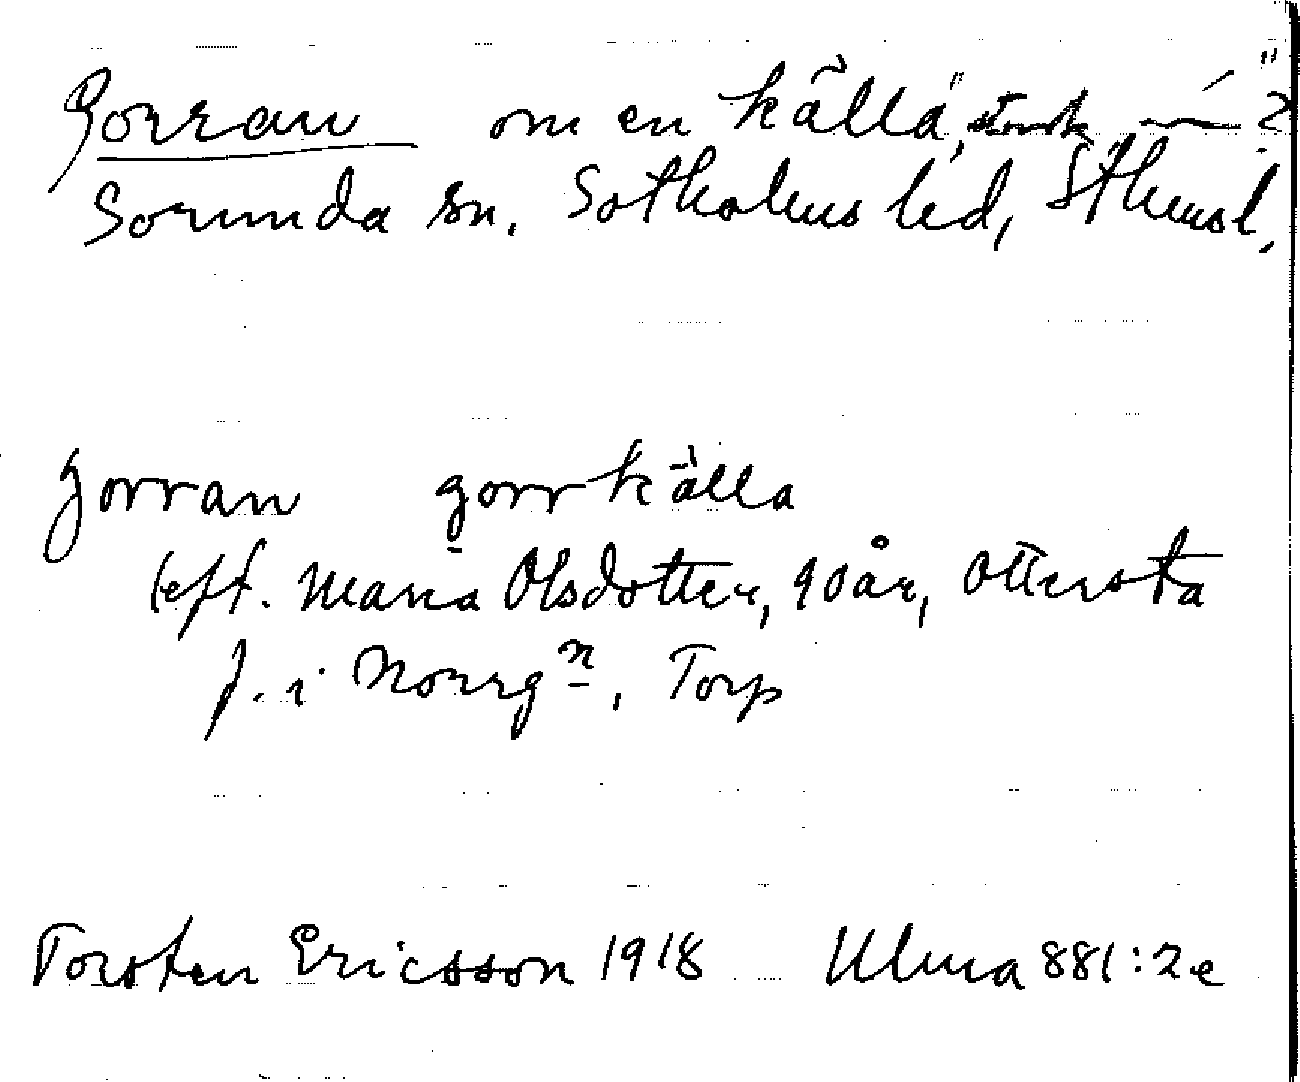 Gorran om en källa, "
Sorunda sn. Sotholms hd, Sthmsl,
gorran gorrkälla
(eft. Maria Olsdotter, 90 år, Ottersta
f. i Norrgⁿ, Torp
Torsten Ericsson 1918 Ulma 881:2e